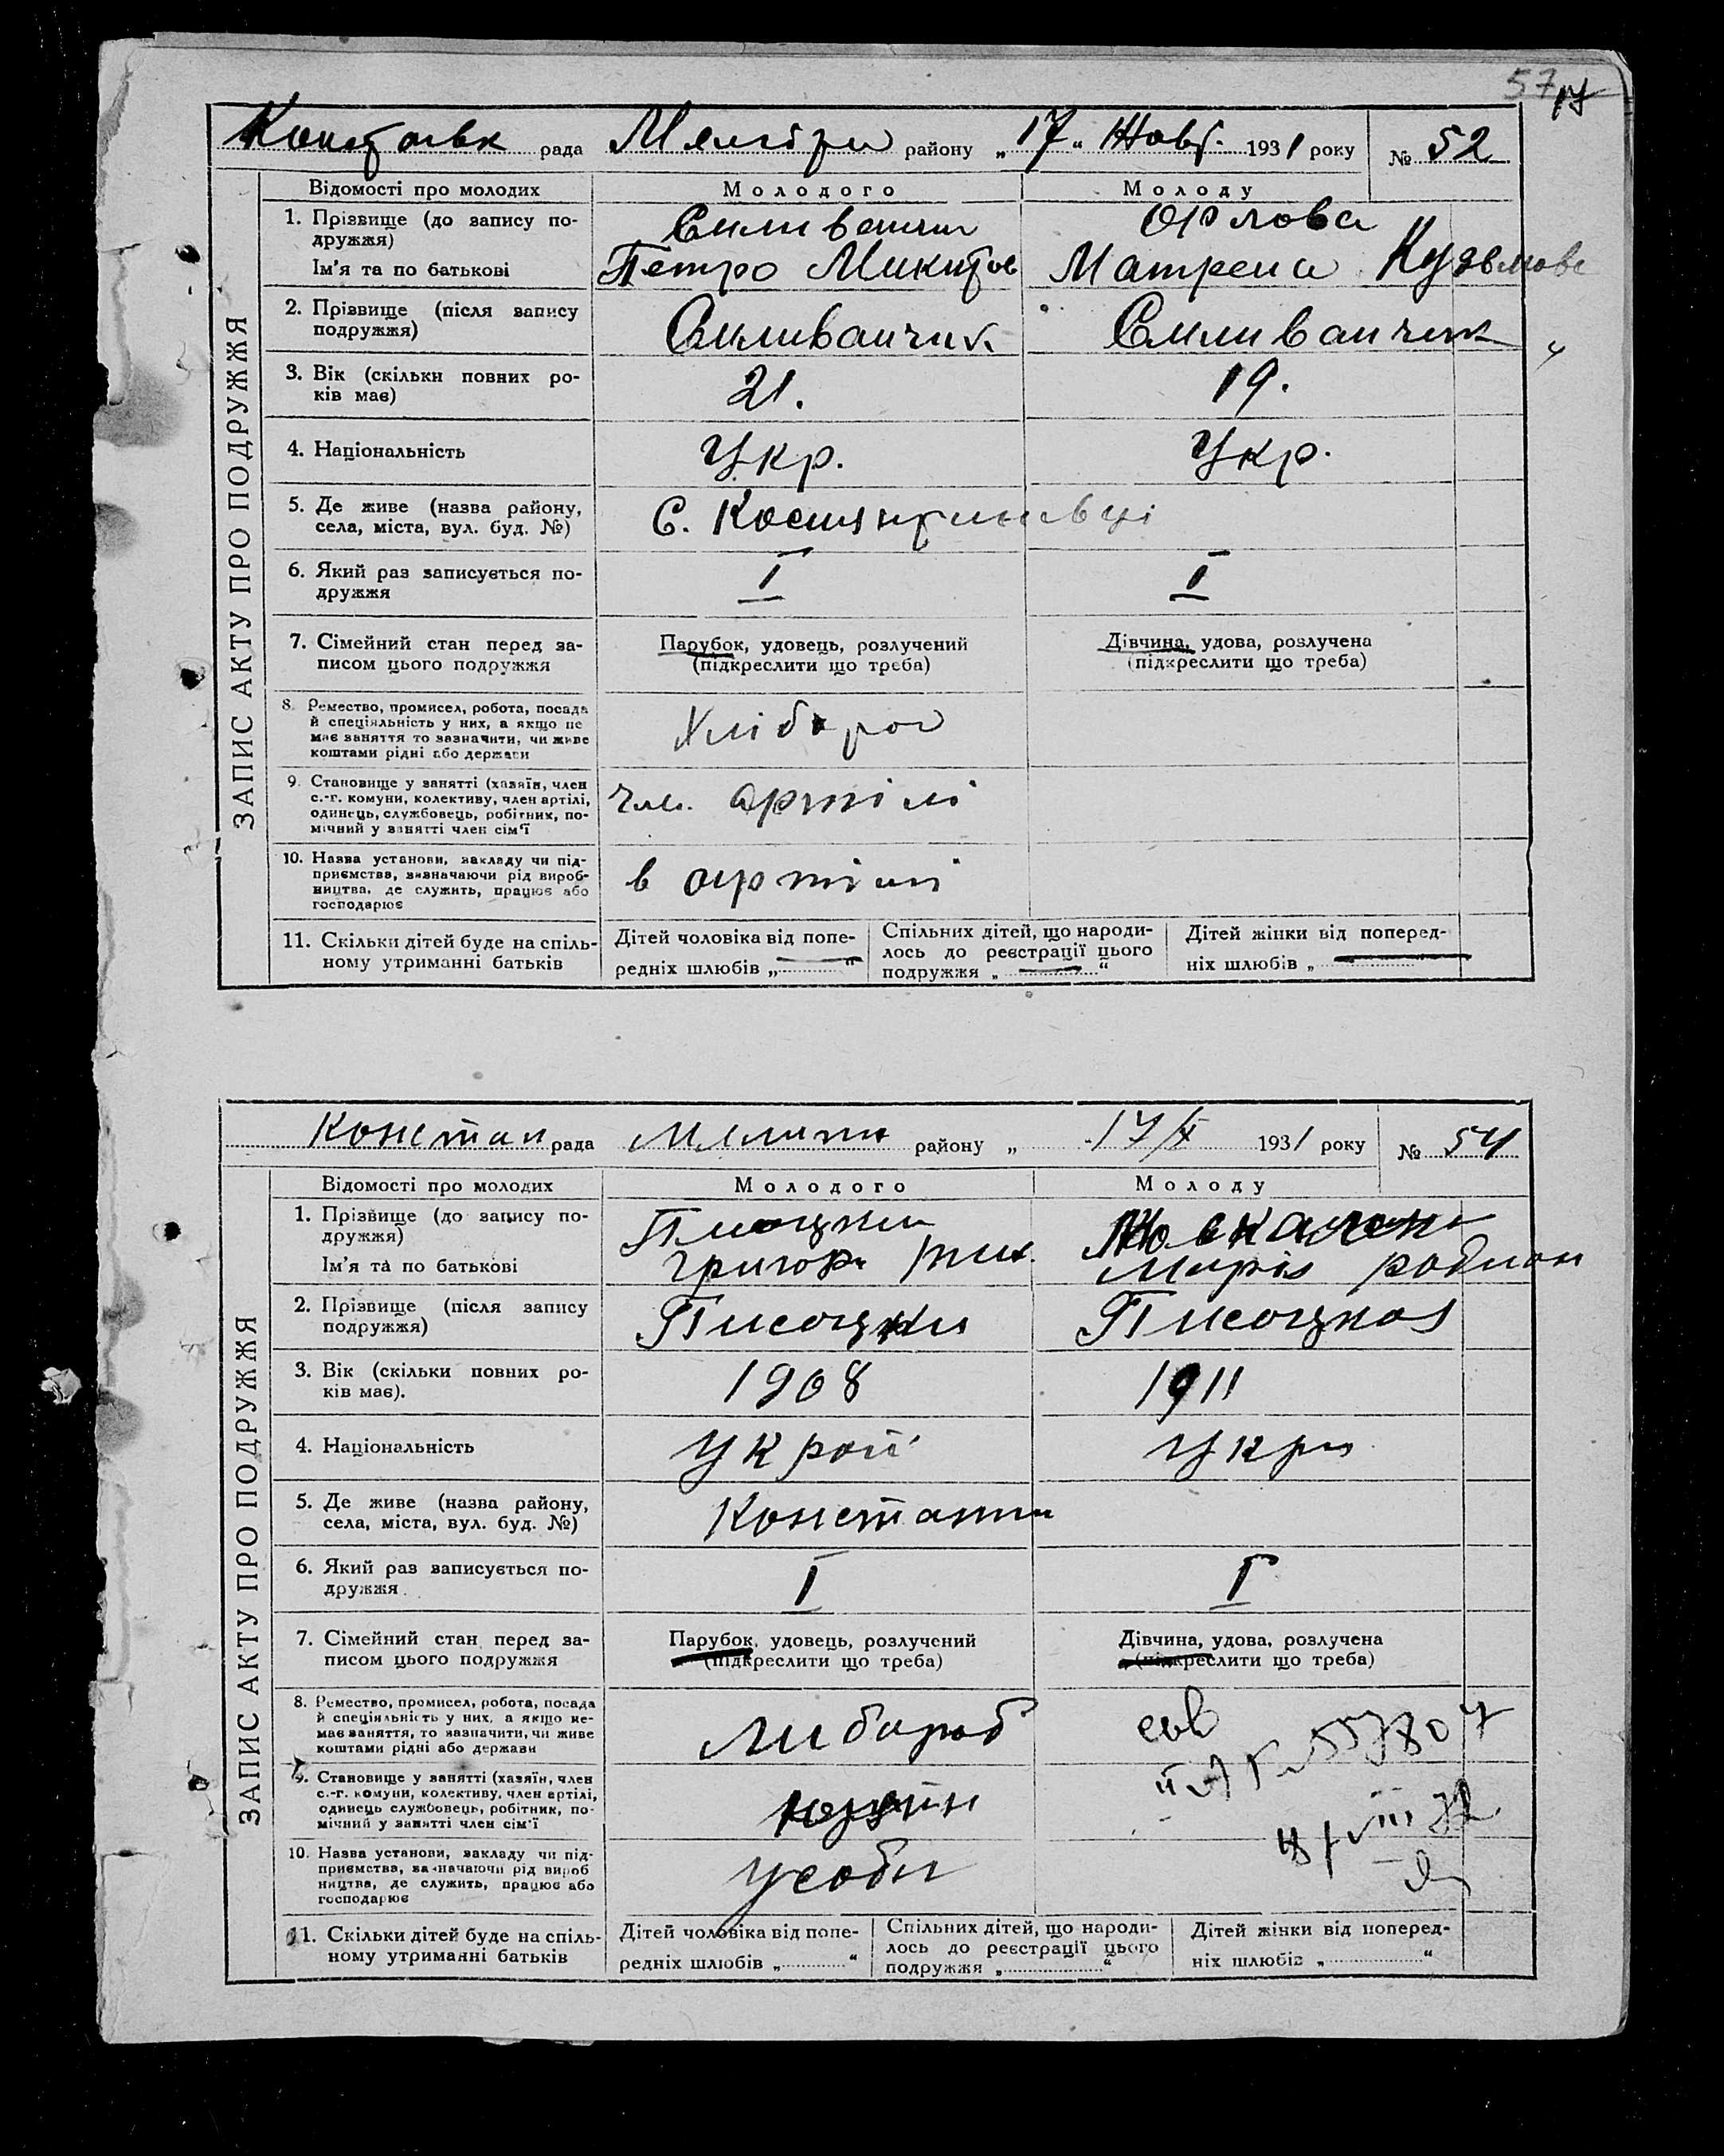 57 17
рада району „17“ Жовт. 1931 року № 52
ЗАПИС АКТУ ПРО ПОДРУЖЖЯ
Відомості про молодих Молодого Молоду
1. Прізвище (до запису по-
дружжя) Орлова
Ім'я та по батькові Петро Микитов Матрена Кузьмовс
2. Прізвище (після запису
подружжя) Силиванчик Силиванчик
3. Вік (скільки повних ро-
ків має) 21. 19.
4. Національність Укр. Укр.
5. Де живе (назва району,
села, міста, вул. буд. №) С.
6. Який раз записується по-
дружжя I I
7. Сімейний стан перед за-
писом цього подружжя
Парубок, удовець, розлучений
(підкреслити що треба)
Дівчина, удова, розлучена
(підкреслити що треба)
8. Ремество, промисел, робота, посада
й спеціяльність у них, а якщо не
має заняття то зазначити, чи живе
коштами рідні або держави
9. Становище у занятті (хазяїн, член
с.-г. комуни, колективу, член артілі,
одинець, службовець, робітник, по-
мічний у занятті член сім'ї
чл. артілі
10. Назва установи, закладу чи під-
приємства, зазначаючи рід вироб-
ництва, де служить, працює або
господарює
в артілі
11. Скільки дітей буде на спіль-
ному утриманні батьків
Дітей чоловіка від попе-
редніх шлюбів „ “
Спільних дітей, що народи-
лось до реєстрації цього
подружжя „ “
Дітей жінки від поперед-
ніх шлюбів „
Констан рада району „ 17/X 1931 року № 54
ЗАПИС АКТУ ПРО ПОДРУЖЖЯ
Відомості про молодих Молодого Молоду
1. Прізвище (до запису по-
дружжя)
Ім'я та по батькові
2. Прізвище (після запису
подружжя) Писоцки Писоцкая
3. Вік (скільки повних ро-
ків має). 1908 1911
4. Національність
5. Де живе (назва району,
села, міста, вул. буд. №) Константи
6. Який раз записується по-
дружжя. I I
7. Сімейний стан перед за-
писом цього подружжя
Парубок, удовець, розлучений
(підкреслити що треба)
Дівчина, удова, розлучена
(підкреслити що треба)
8. Ремество, промисел, робота, посада
й спеціяльність у них, а якщо не-
має заняття, то зазначити, чи живе
коштами рідні або держави
9. Становище у занятті (хазяїн, член
с.-г. комуни, колективу, член артілі,
одинець службовець, робітник, по-
мічний у занятті член сім'ї
10. Назва установи, закладу чи під-
приємства, зазначаючи рід вироб
ництва, де служить, працює або
господарює
11. Скільки дітей буде на спіль-
ному утриманні батьків
Дітей чоловіка від попе-
редніх шлюбів „ “
Спільних дітей, що народи-
лось до реєстрації цього
подружжя „ “
Дітей жінки від поперед-
ніх шлюбів „ “